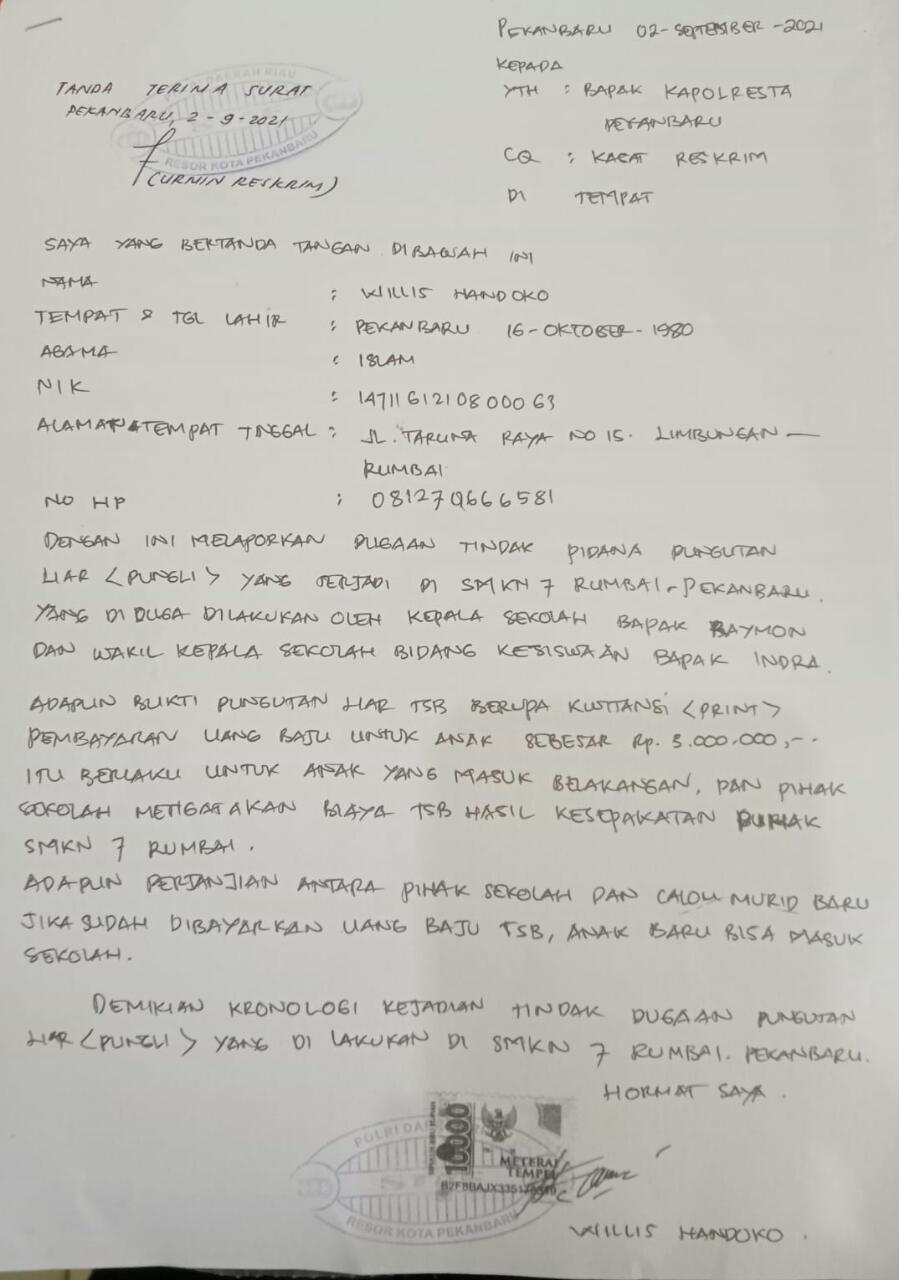 PEKANBARU 02-SEPTEMBER-2021
KEPADA
YTH : BAPAK KAPOLRESTA
PEKANBARU
CQ : KASAT RESKRIM
DI TEMPAT
TANDA TERIMA SURAT
PEKANBARU, 2-9-2021
RESOR KOTA PEKANBARU
(URMIN RESKRIM)
SAYA YANG BERTANDA TANGAN DIBAWAH INI
NAMA : WILLIS HANDOKO
TEMPAT & TGL LAHIR : PEKANBARU 16-OKTOBER-1980
AGAMA : ISLAM
NIK : 1471161210800063
ALAMAT TEMPAT TINGGAL : JL. TARUNA RAYA NO 15. LIMBUNGAN —
RUMBAI
NO HP :
DENGAN INI MELAPORKAN DUGAAN TINDAK PIDANA PUNGUTAN
LIAR <PUNGLI> YANG TERJADI DI SMKN 7 RUMBAI-PEKANBARU.
YANG DI DUGA DILAKUKAN OLEH KEPALA SEKOLAH BAPAK RAYMON
DAN WAKIL KEPALA SEKOLAH BIDANG KESISWAAN BAPAK INDRA.
ADAPUN BUKTI PUNGUTAN LIAR TSB BERUPA KWITANSI <PRINT>
PEMBAYARAN UANG BAJU UNTUK ANAK SEBESAR Rp. 3.000.000,--
ITU BERLAKU UNTUK ANAK YANG MASUK BELAKANGAN, DAN PIHAK
SEKOLAH MENGATAKAN BIAYA TSB HASIL KESEPAKATAN PIHAK
SMKN 7 RUMBAI.
ADAPUN PERJANJIAN ANTARA PIHAK SEKOLAH DAN CALON MURID BARU
JIKA SUDAH DIBAYARKAN UANG BAJU TSB, ANAK BARU BISA MASUK
SEKOLAH.
DEMIKIAN KRONOLOGI KEJADIAN TINDAK DUGAAN PUNGUTAN
LIAR <PUNGLI> YANG DI LAKUKAN DI SMKN 7 RUMBAI. PEKANBARU.
HORMAT SAYA.
10000
METERAI
TEMPEL
RESOR KOTA PEKANBARU
WILLIS HANDOKO.